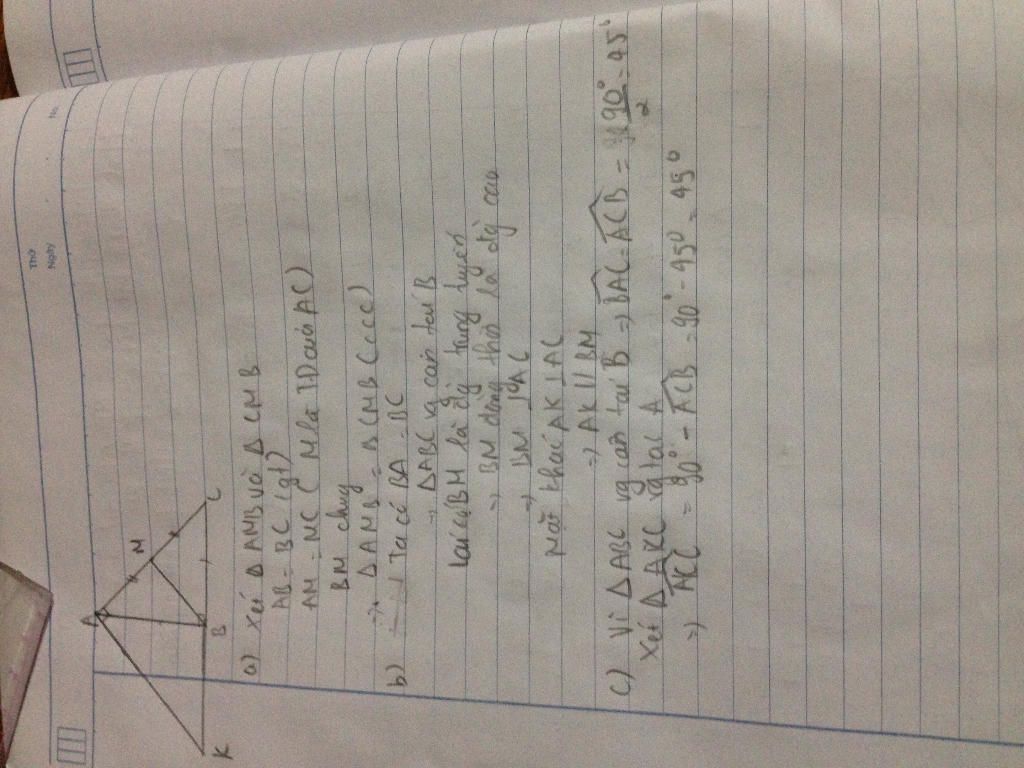 Thứ
Ngày
No.
A
M
K
B
C
a) Xét Δ AMB và Δ CMB
AB = BC (gt)
AM = MC ( M là T.D của AC)
BM chung
=> Δ AMB = Δ CMB (ccc)
b) Ta có BA = BC
=> ΔABC vg cân tại B
Lại có BM là đg trung tuyến
=> BM đồng thời là đg cao
=> BM ⊥ AC
Mặt khác AK ⊥ AC
=> AK // BM
c) Vì Δ ABC vg cân tại B => BAC = ACB = 90°/2 = 45°
Xét Δ AKC vg tại A
=> AKC = 90° - ACB = 90° - 45° = 45°